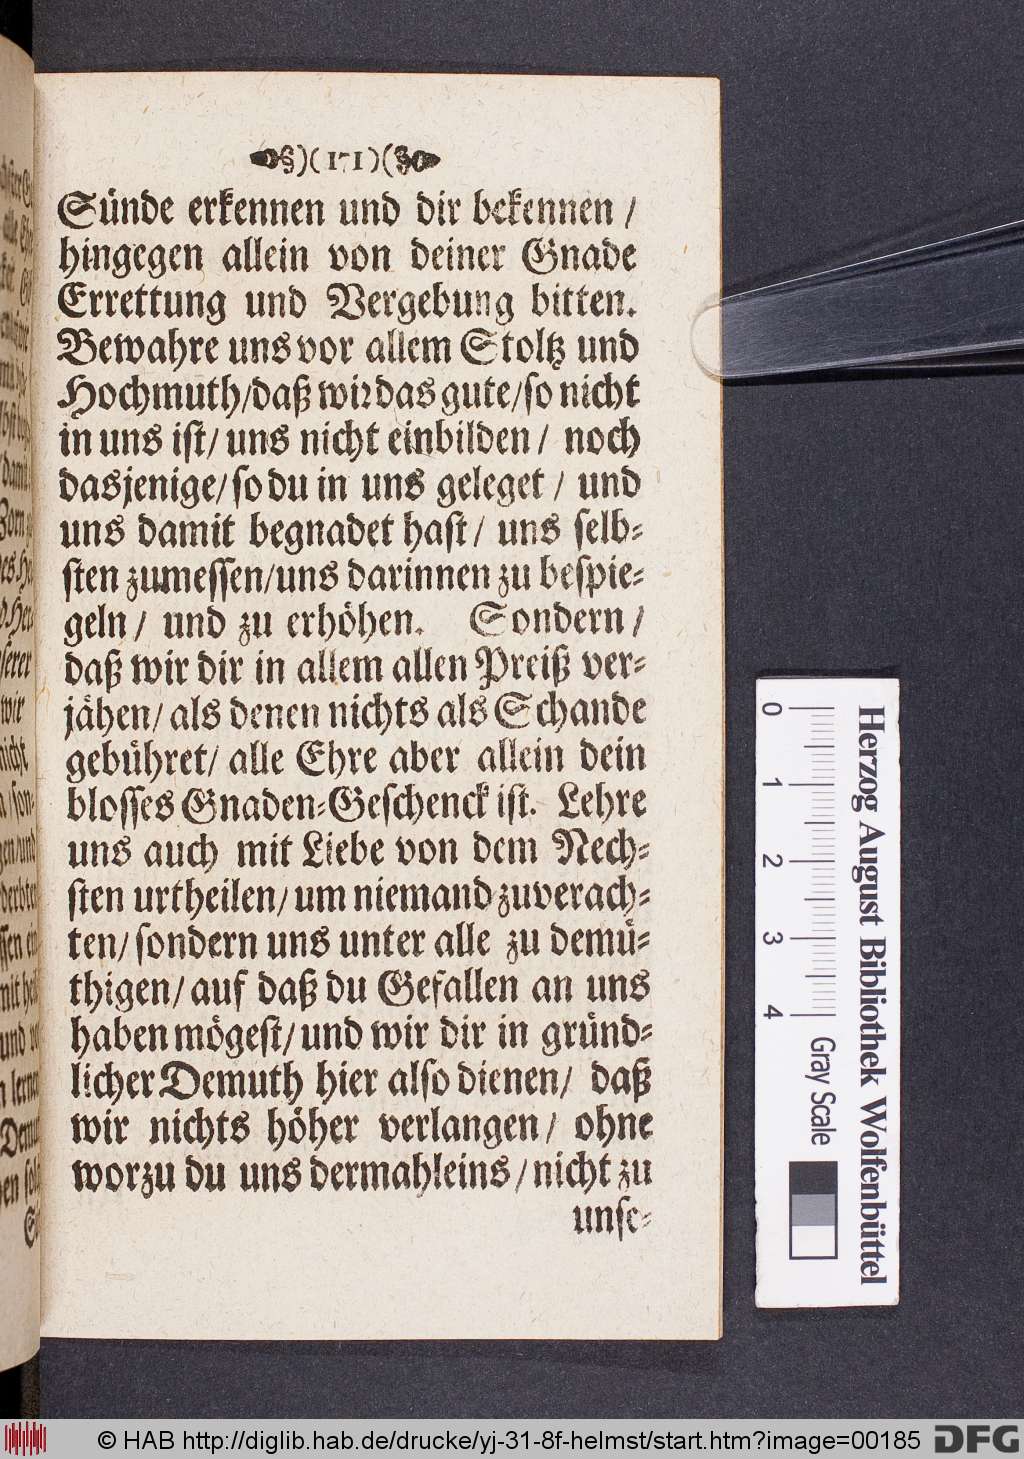 )(171)(
Sünde erkennen und dir bekennen /
hingegen allein von deiner Gnade
Errettung und Vergebung bitten.
Bewahre uns vor allem Stoltz und
Hochmuth/daß wir das gute/so nicht
in uns ist/ uns nicht einbilden / noch
dasjenige/ so du in uns geleget / und
uns damit begnadet hast/ uns selb⸗
sten zumessen/uns darinnen zu bespie⸗
geln/ und zu erhöhen. Sondern /
daß wir dir in allem allen Preiß ver⸗
jähen/ als denen nichts als Schande
gebühret/ alle Ehre aber allein dein
blosses Gnaden⸗Geschenck ist. Lehre
uns auch mit Liebe von dem Nech⸗
sten urtheilen/ um niemand zuverach⸗
ten/ sondern uns unter alle zu demü⸗
thigen/ auf daß du Gefallen an uns
haben mögest/ und wir dir in gründ⸗
licher Demuth hier also dienen/ daß
wir nichts höher verlangen/ ohne
worzu du uns dermahleins/nicht zu
unse⸗
Herzog August Bibliothek Wolfenbüttel
0 1 2 3 4 Gray Scale
© HAB http://diglib.hab.de/drucke/yj-31-8f-helmst/start.htm?image=00185
DFG